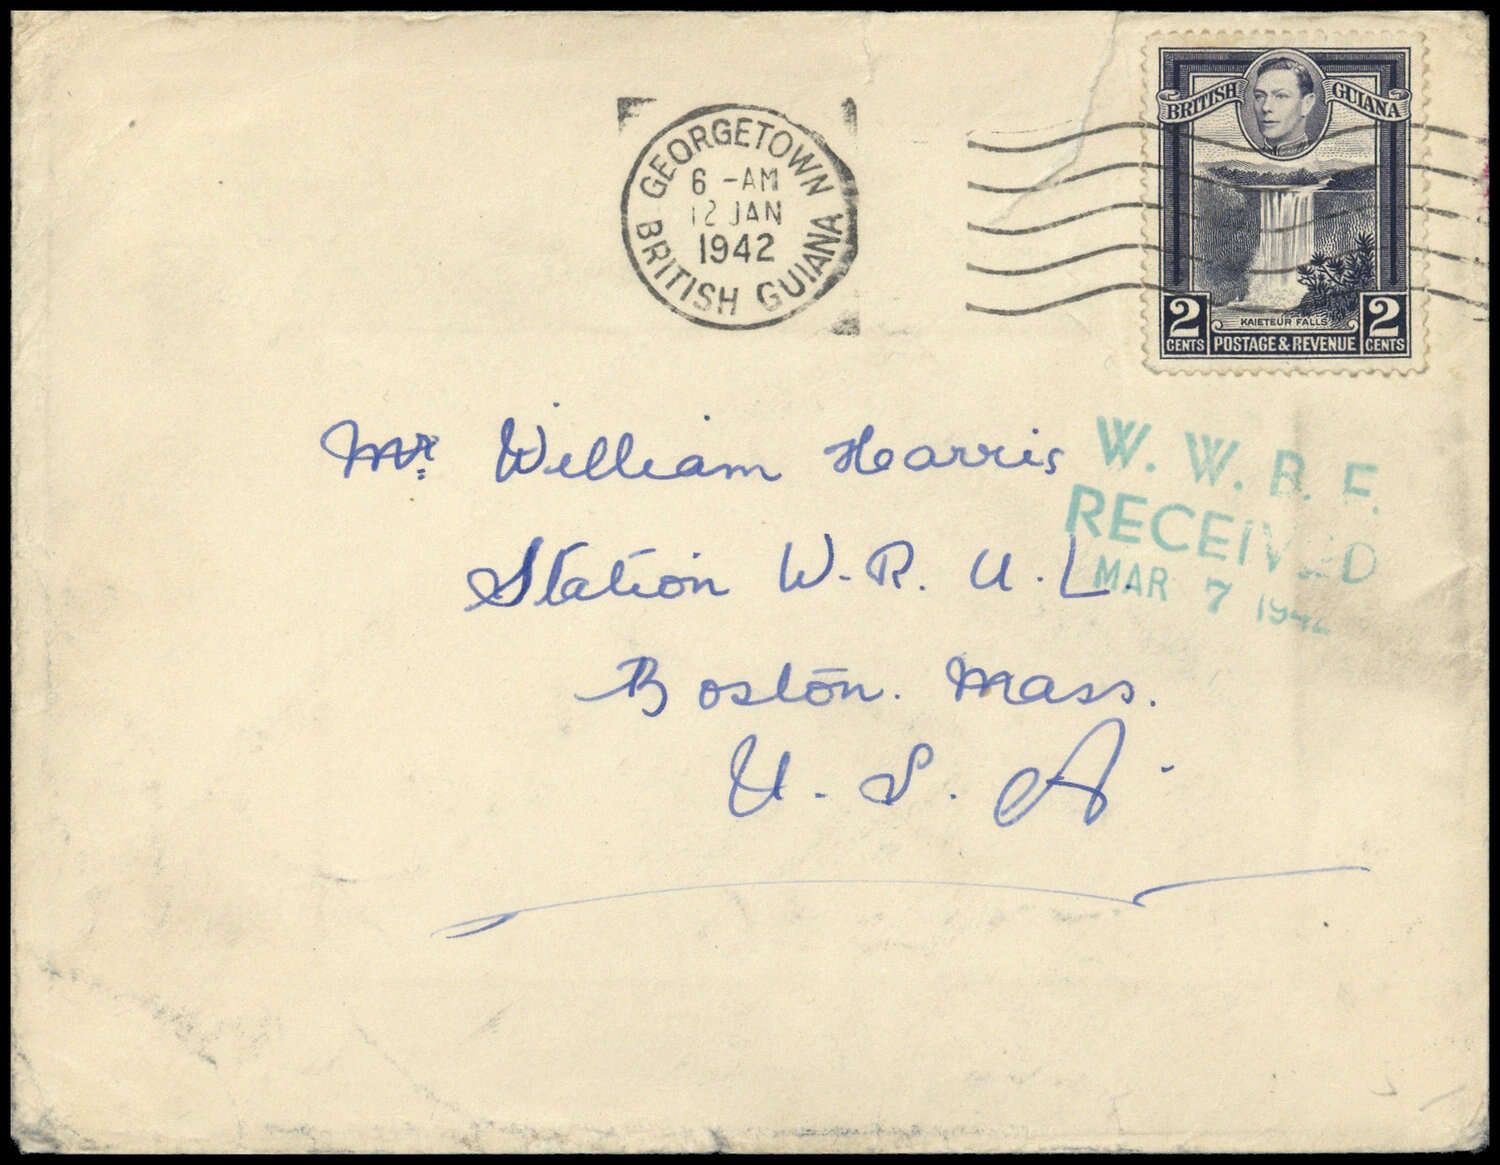 GEORGETOWN
6 - AM
12 JAN
1942
BRITISH GUIANA
BRITISH GUIANA
KAIETEUR FALLS
2 CENTS POSTAGE & REVENUE 2 CENTS
Mr. William Harris
Station W. R. U. L.
Boston. Mass.
U. S. A.
W. W. B. F.
RECEIVED
MAR 7 1942